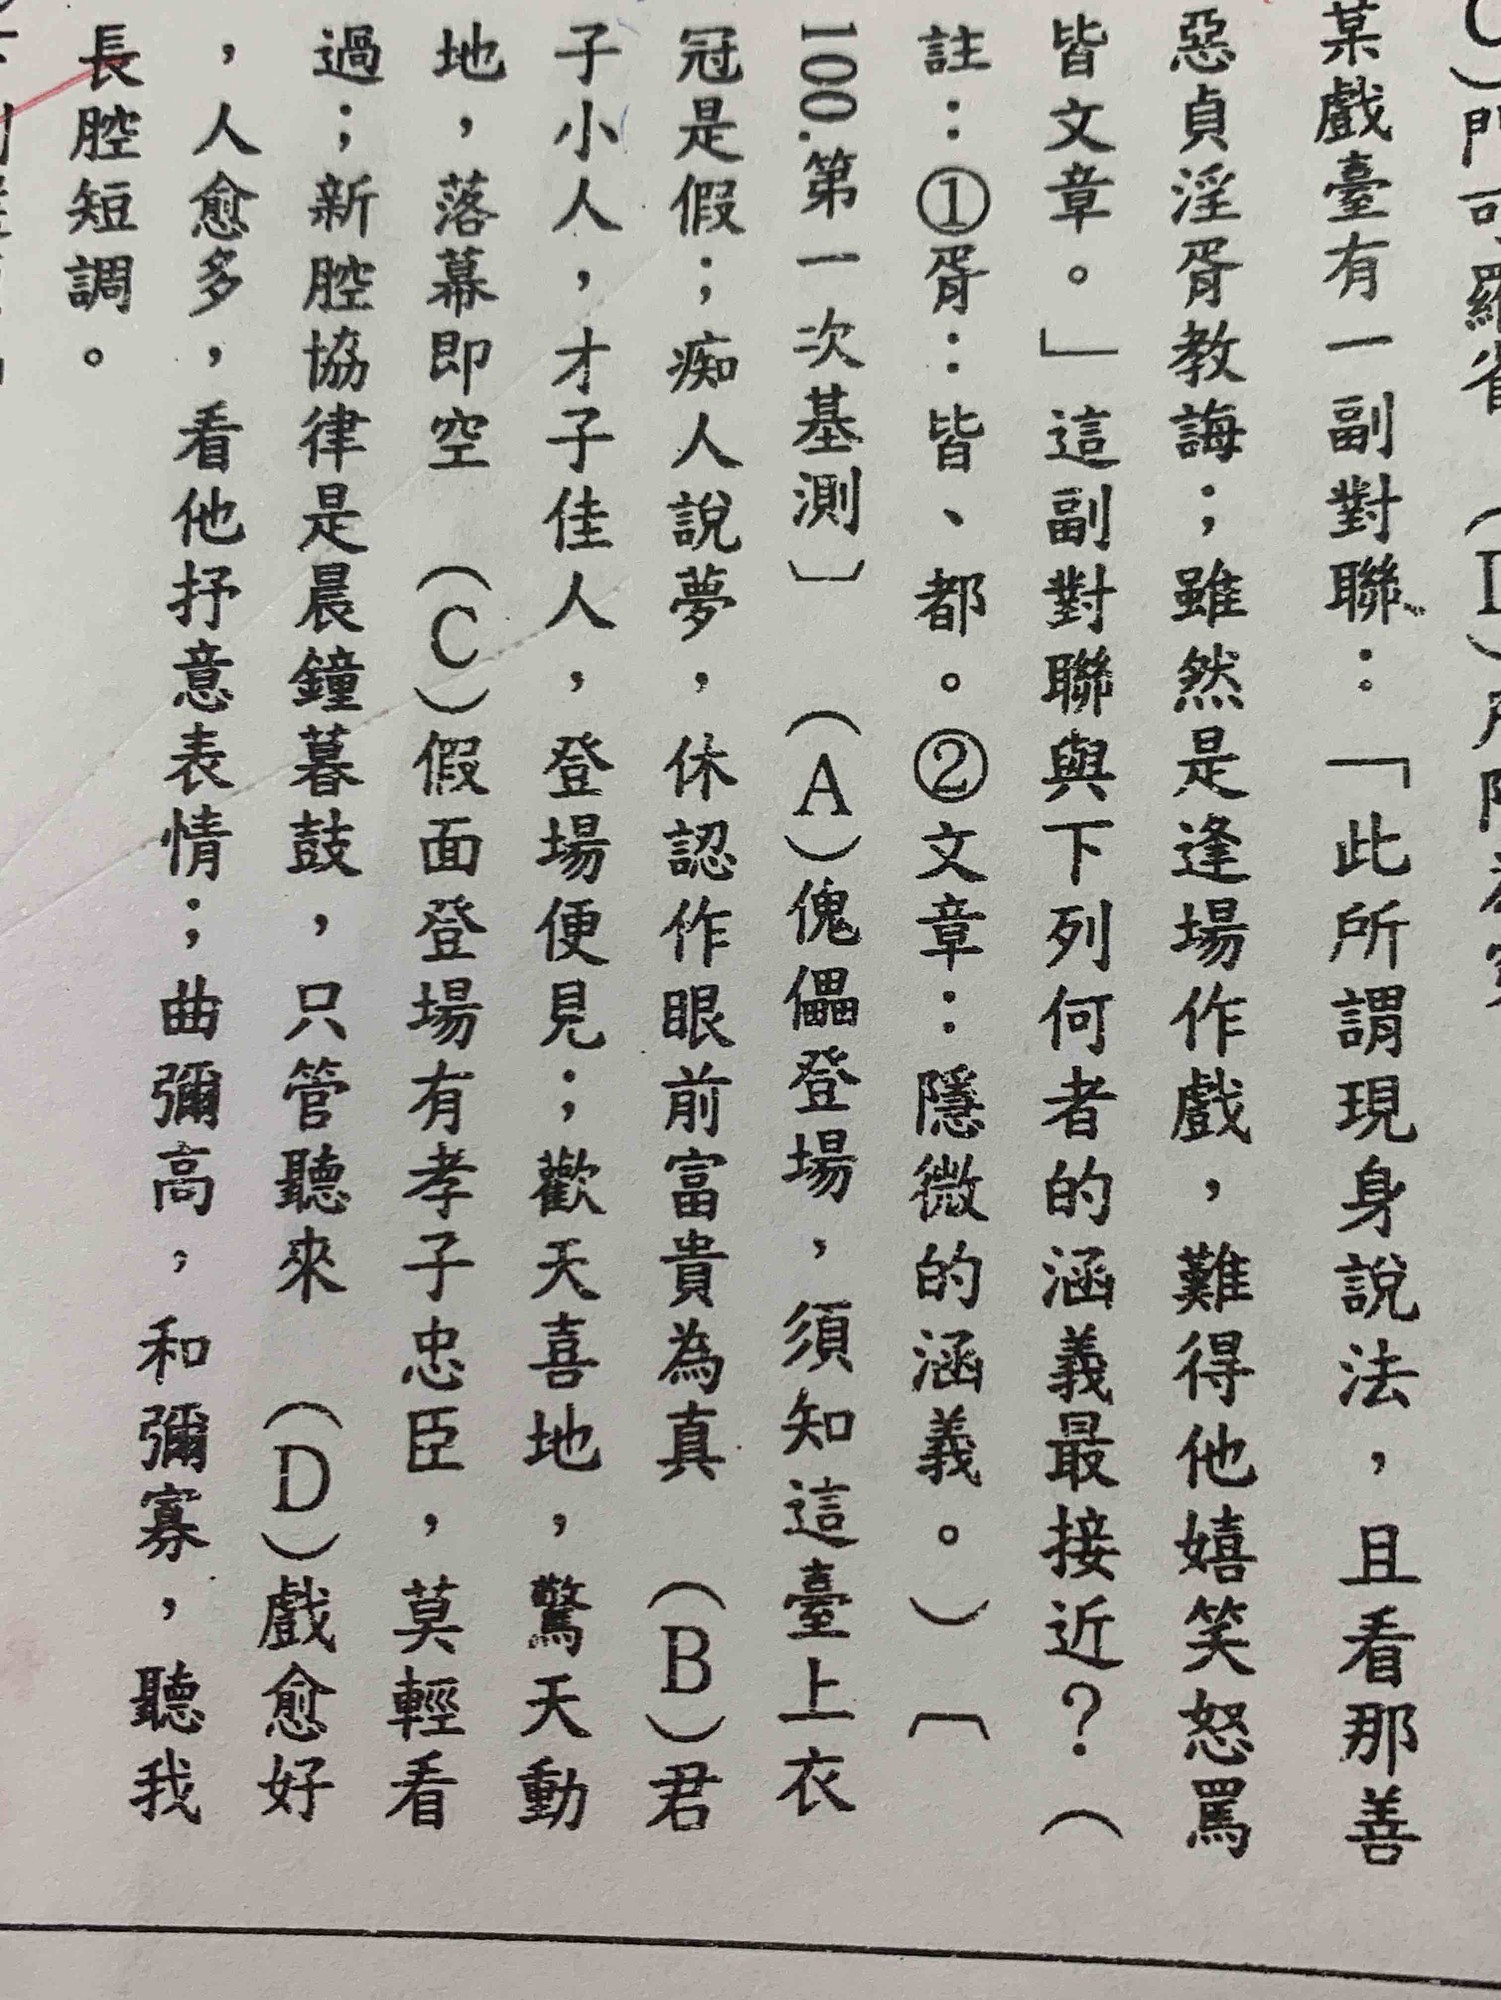 ）門可羅雀　（D）所
某戲臺有一副對聯：「此所謂現身說法，且看那善
惡貞淫胥教誨；雖然是逢場作戲，難得他嬉笑怒罵
皆文章。」這副對聯與下列何者的涵義最接近？（
註：①胥：皆、都。②文章：隱微的涵義。）〔
100.第一次基測〕　（A）傀儡登場，須知這臺上衣
冠是假；痴人說夢，休認作眼前富貴為真　（B）君
子小人，才子佳人，登場便見；歡天喜地，驚天動
地，落幕即空　（C）假面登場有孝子忠臣，莫輕看
過；新腔協律是晨鐘暮鼓，只管聽來　（D）戲愈好
，人愈多，看他抒意表情；曲彌高，和彌寡，聽我
長腔短調。